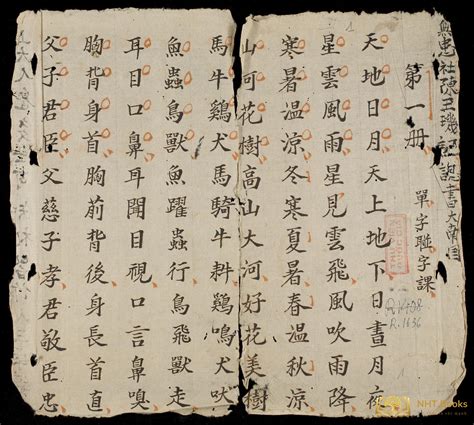 第一册
單字聯字課
天地日月天上地下日晝月夜
星雲風雨星見雲飛風吹雨降
寒暑温涼冬寒夏暑春温秋涼
山河花樹高山大河好花美樹
馬牛鷄犬馬騎牛耕鷄鳴犬吠
魚蟲鳥獸魚躍蟲行鳥飛獸走
耳目口鼻耳聞目視口言鼻嗅
胸背身首胸前背後身長首直
父子君臣父慈子孝君敬臣忠
R.1636
NHT Books